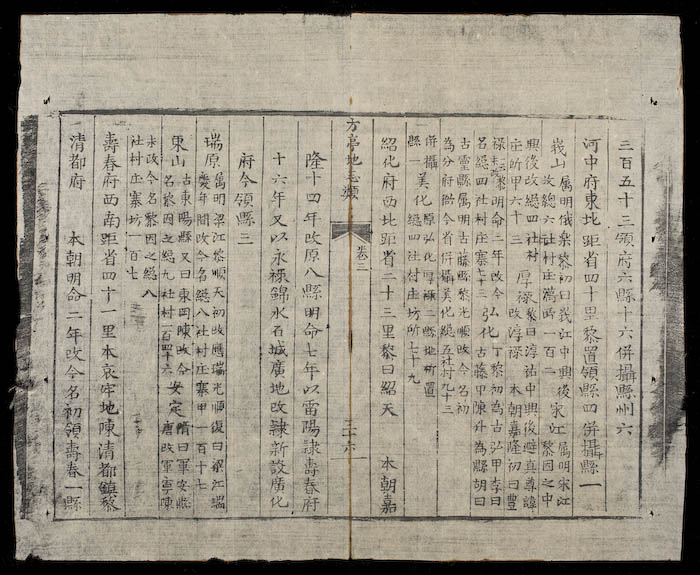 三百五十三領府六縣十六併攝縣州六
河中府東北距省四十里黎置領縣四併攝縣一
峩山屬明俄樂黎初曰峩江中興後
改總六社村庄萬所一百二
宋江屬明宋江
黎因之中
興後改總四社村
庄所甲六十三
厚祿黎曰淳祐中興後避真尊諱
改淳祿 本朝嘉隆初曰豊
祿明命二年改今
名總四社村庄寨七十三
弘化丁黎初為古弘甲李曰
古藤甲陳升為縣胡曰
古靈縣屬明古藤縣黎光順改今名初
為分府尚今省併攝美化總五社村九十三
併攝
縣一
美化原弘化厚祿二縣地析置
總四社村庄坊所七十九
紹化府西北距省二十三里黎曰紹天 本朝嘉
方亭地志類
卷三
三十六
隆十四年改原八縣明命七年以雷陽隷壽春府
十六年又以永祿錦水石城廣地改隷新設廣化
府今領縣三
瑞原屬明梁江黎順天初改應瑞光順復曰梁江瑞
慶年間改今名總八社村庄寨甲一百十七
東山古東陽縣又曰東岡陳改今
名黎因之總九社村一百四十六
安定隋曰軍安縣
唐改軍寧陳
末改今名黎因之總八
社村庄寨坊一百七
壽春府西南距省四十一里本哀牢地陳清都鎮黎
清都府 本朝明命二年改今名初領壽春一縣